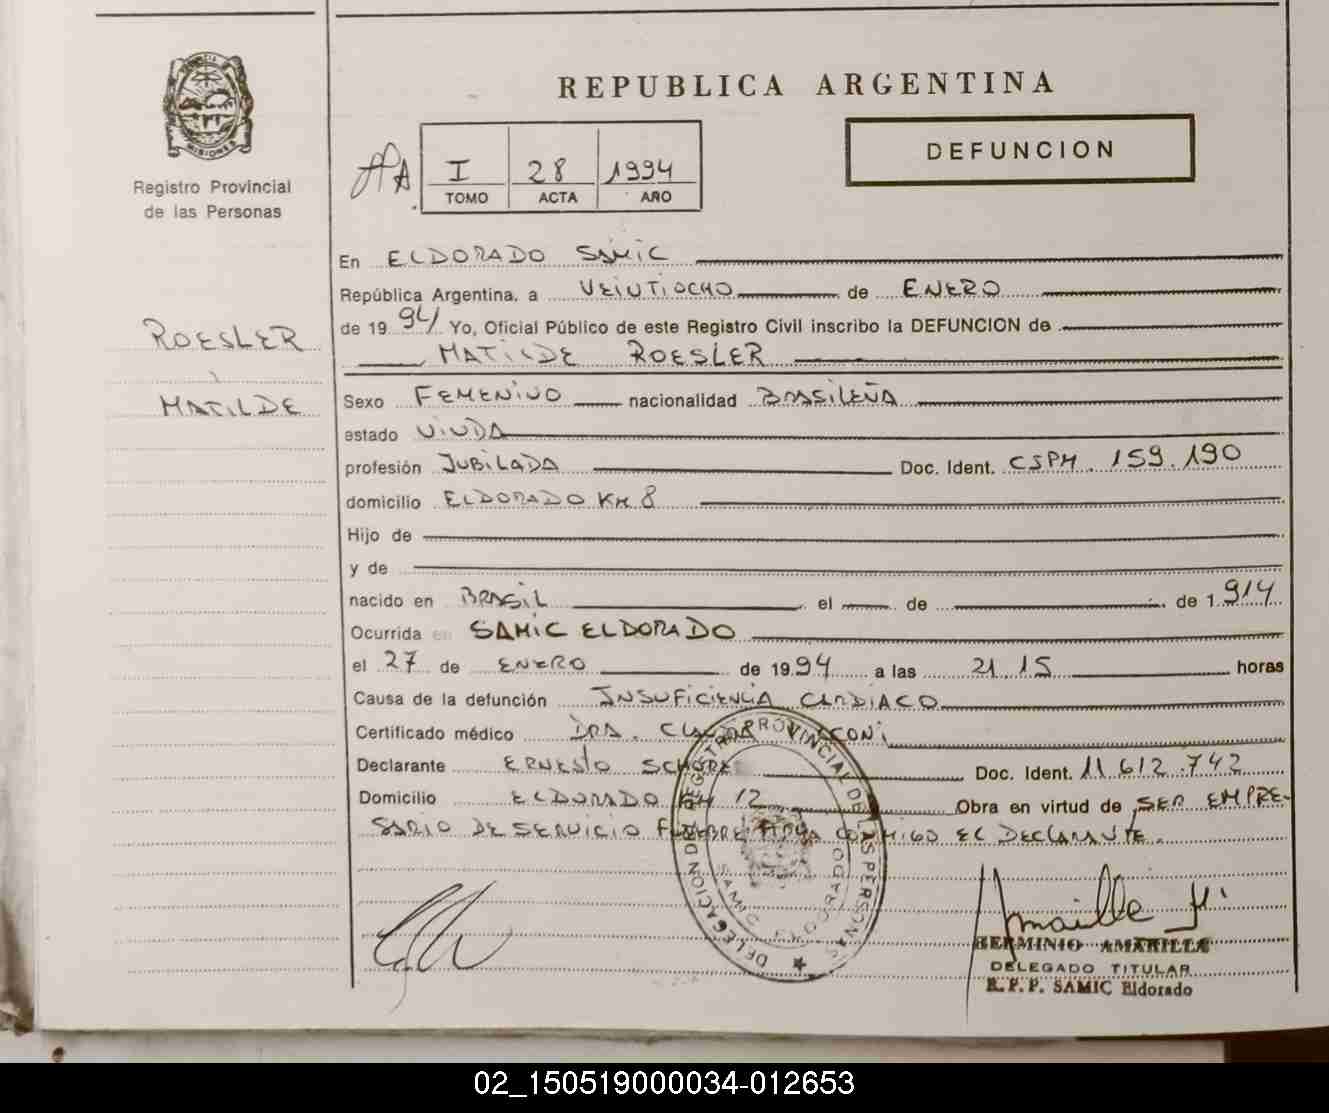 REPUBLICA ARGENTINA
MISIONES
Registro Provincial
de las Personas
I 28 1994
TOMO ACTA AÑO
DEFUNCION
En ELDORADO SAMIC
República Argentina, a VEINTIOCHO de ENERO
de 19 94 Yo, Oficial Público de este Registro Civil inscribo la DEFUNCION de
MATILDE ROESLER
ROESLER
MATILDE
Sexo FEMENINO nacionalidad BRASILEÑA
estado VIUDA
profesión JUBILADA Doc. Ident. CSPM. 159.190
domicilio ELDORADO KM 8
Hijo de
y de
nacido en BRASIL el de de 1.914
Ocurrida en SAMIC ELDORADO
el 27 de ENERO de 1994 a las 21.15 horas
Causa de la defunción INSUFICIENCIA CARDIACO
Certificado médico DRA.
Declarante ERNESTO Doc. Ident. 11.612.742
Domicilio ELDORADO KM 12 Obra en virtud de SER EMPRE-
SARIO DE SERVICIO FUNEBRE FIRMA CONMIGO EL DECLARANTE.
DELEGACION DEL REGISTRO PROVINCIAL DE LAS PERSONAS
SAMIC ELDORADO
Amarilla H.
HERMINIO AMARILLA
DELEGADO TITULAR
R.P.P. SAMIC Eldorado
02_150519000034-012653